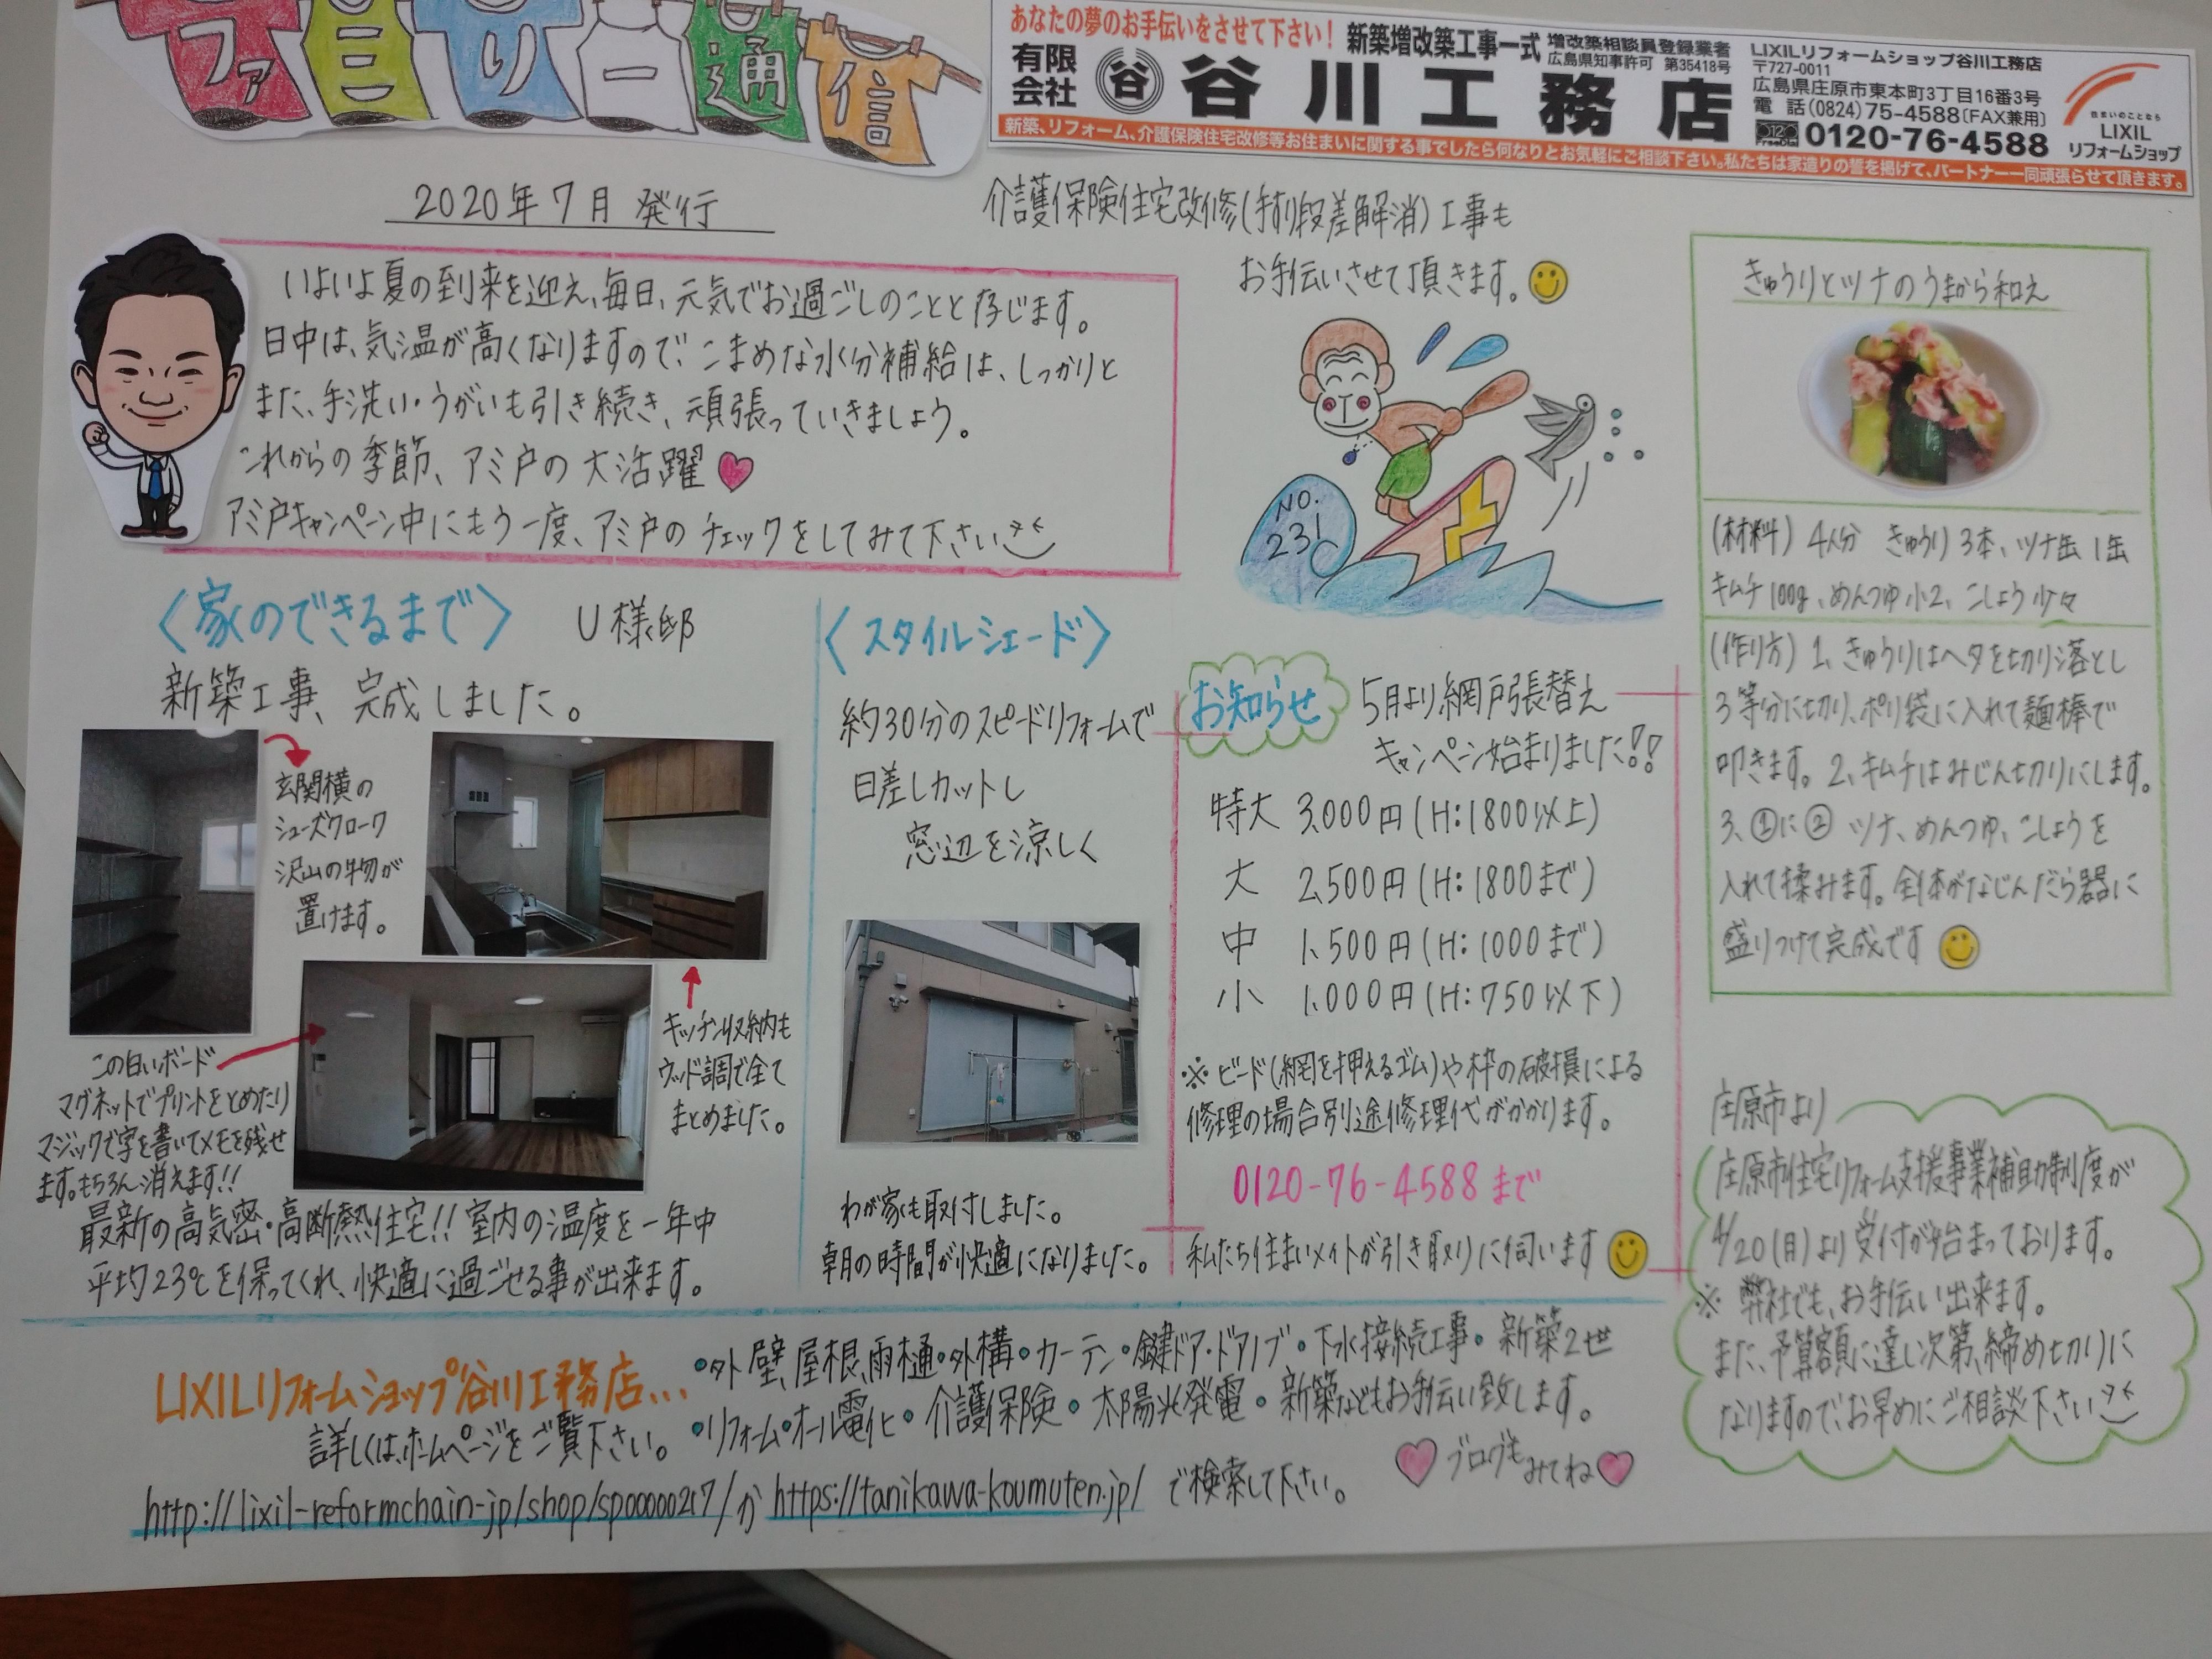 ファミリー通信
あなたの夢のお手伝いをさせて下さい!
新築増改築工事一式
増改築相談員登録業者
広島県知事許可 第35418号
有限会社
谷
谷川工務店
LIXILリフォームショップ谷川工務店
〒727-0011
広島県庄原市東本町3丁目16番3号
電話(0824)75-4588〔FAX兼用〕
0120-76-4588
住まいのことなら
LIXIL
リフォームショップ
新築、リフォーム、介護保険住宅改修等お住まいに関する事でしたら何なりとお気軽にご相談下さい。私たちは家造りの誓を掲げて、パートナー一同頑張らせて頂きます。
2020年7月 発行
介護保険住宅改修(手すり段差解消)工事も
お手伝いさせて頂きます。
いよいよ夏の到来を迎え、毎日、元気でお過ごしのことと存じます。
日中は、気温が高くなりますので、こまめな水分補給は、しっかりと
また、手洗い・うがいも引き続き、頑張っていきましょう。
これからの季節、アミ戸の大活躍
アミ戸キャンペーン中にもう一度、アミ戸のチェックをしてみて下さい
NO.
231
〈家のできるまで〉 U様邸
新築工事、完成しました。
玄関横の
シューズクローク
沢山の物が
置けます。
キッチン収納も
ウッド調で全て
まとめました。
この白いボード
マグネットでプリントをとめたり
マジックで字を書いてメモを残せ
ます。もちろん消えます!!
最新の高気密・高断熱住宅!! 室内の温度を一年中
平均23℃を保ってくれ、快適に過ごせる事が出来ます。
〈スタイルシェード〉
約30分のスピードリフォームで
日差しカットし
窓辺を涼しく
わが家も取付しました。
朝の時間が快適になりました。
お知らせ
5月より網戸張替え
キャンペーン始まりました!!
特大 3,000円(H:1800以上)
大 2,500円(H:1800まで)
中 1,500円(H:1000まで)
小 1,000円(H:750以下)
※ビード(網を押えるゴム)や枠の破損による
修理の場合別途修理代がかかります。
0120-76-4588まで
私たち住まいメイトが引き取りに伺います
きゅうりとツナのうまから和え
(材料) 4人分 きゅうり3本、ツナ缶1缶
キムチ100g、めんつゆ小2、こしょう少々
(作り方) 1、きゅうりはヘタを切り落とし
3等分に切り、ポリ袋に入れて麺棒で
叩きます。2、キムチはみじん切りにします。
3、①に② ツナ、めんつゆ、こしょうを
入れて揉みます。全体がなじんだら器に
盛りつけて完成です
庄原市より
庄原市住宅リフォーム支援事業補助制度が
4/20(月)より受付が始まっております。
※ 弊社でも、お手伝い出来ます。
また、予算額に達し次第、締め切りに
なりますので、お早めにご相談下さい
LIXILリフォームショップ谷川工務店...
・外壁、屋根、雨樋・外構・カーテン・鍵ドア・ドアノブ・下水接続工事・新築2世
・リフォーム・オール電化・介護保険・太陽光発電・新築などもお手伝い致します。
詳しくは、ホームページをご覧下さい。
ブログもみてね
http://lixil-reformchain-jp/shop/sp00000217/か https://tanikawa-koumuten.jp/ で検索して下さい。